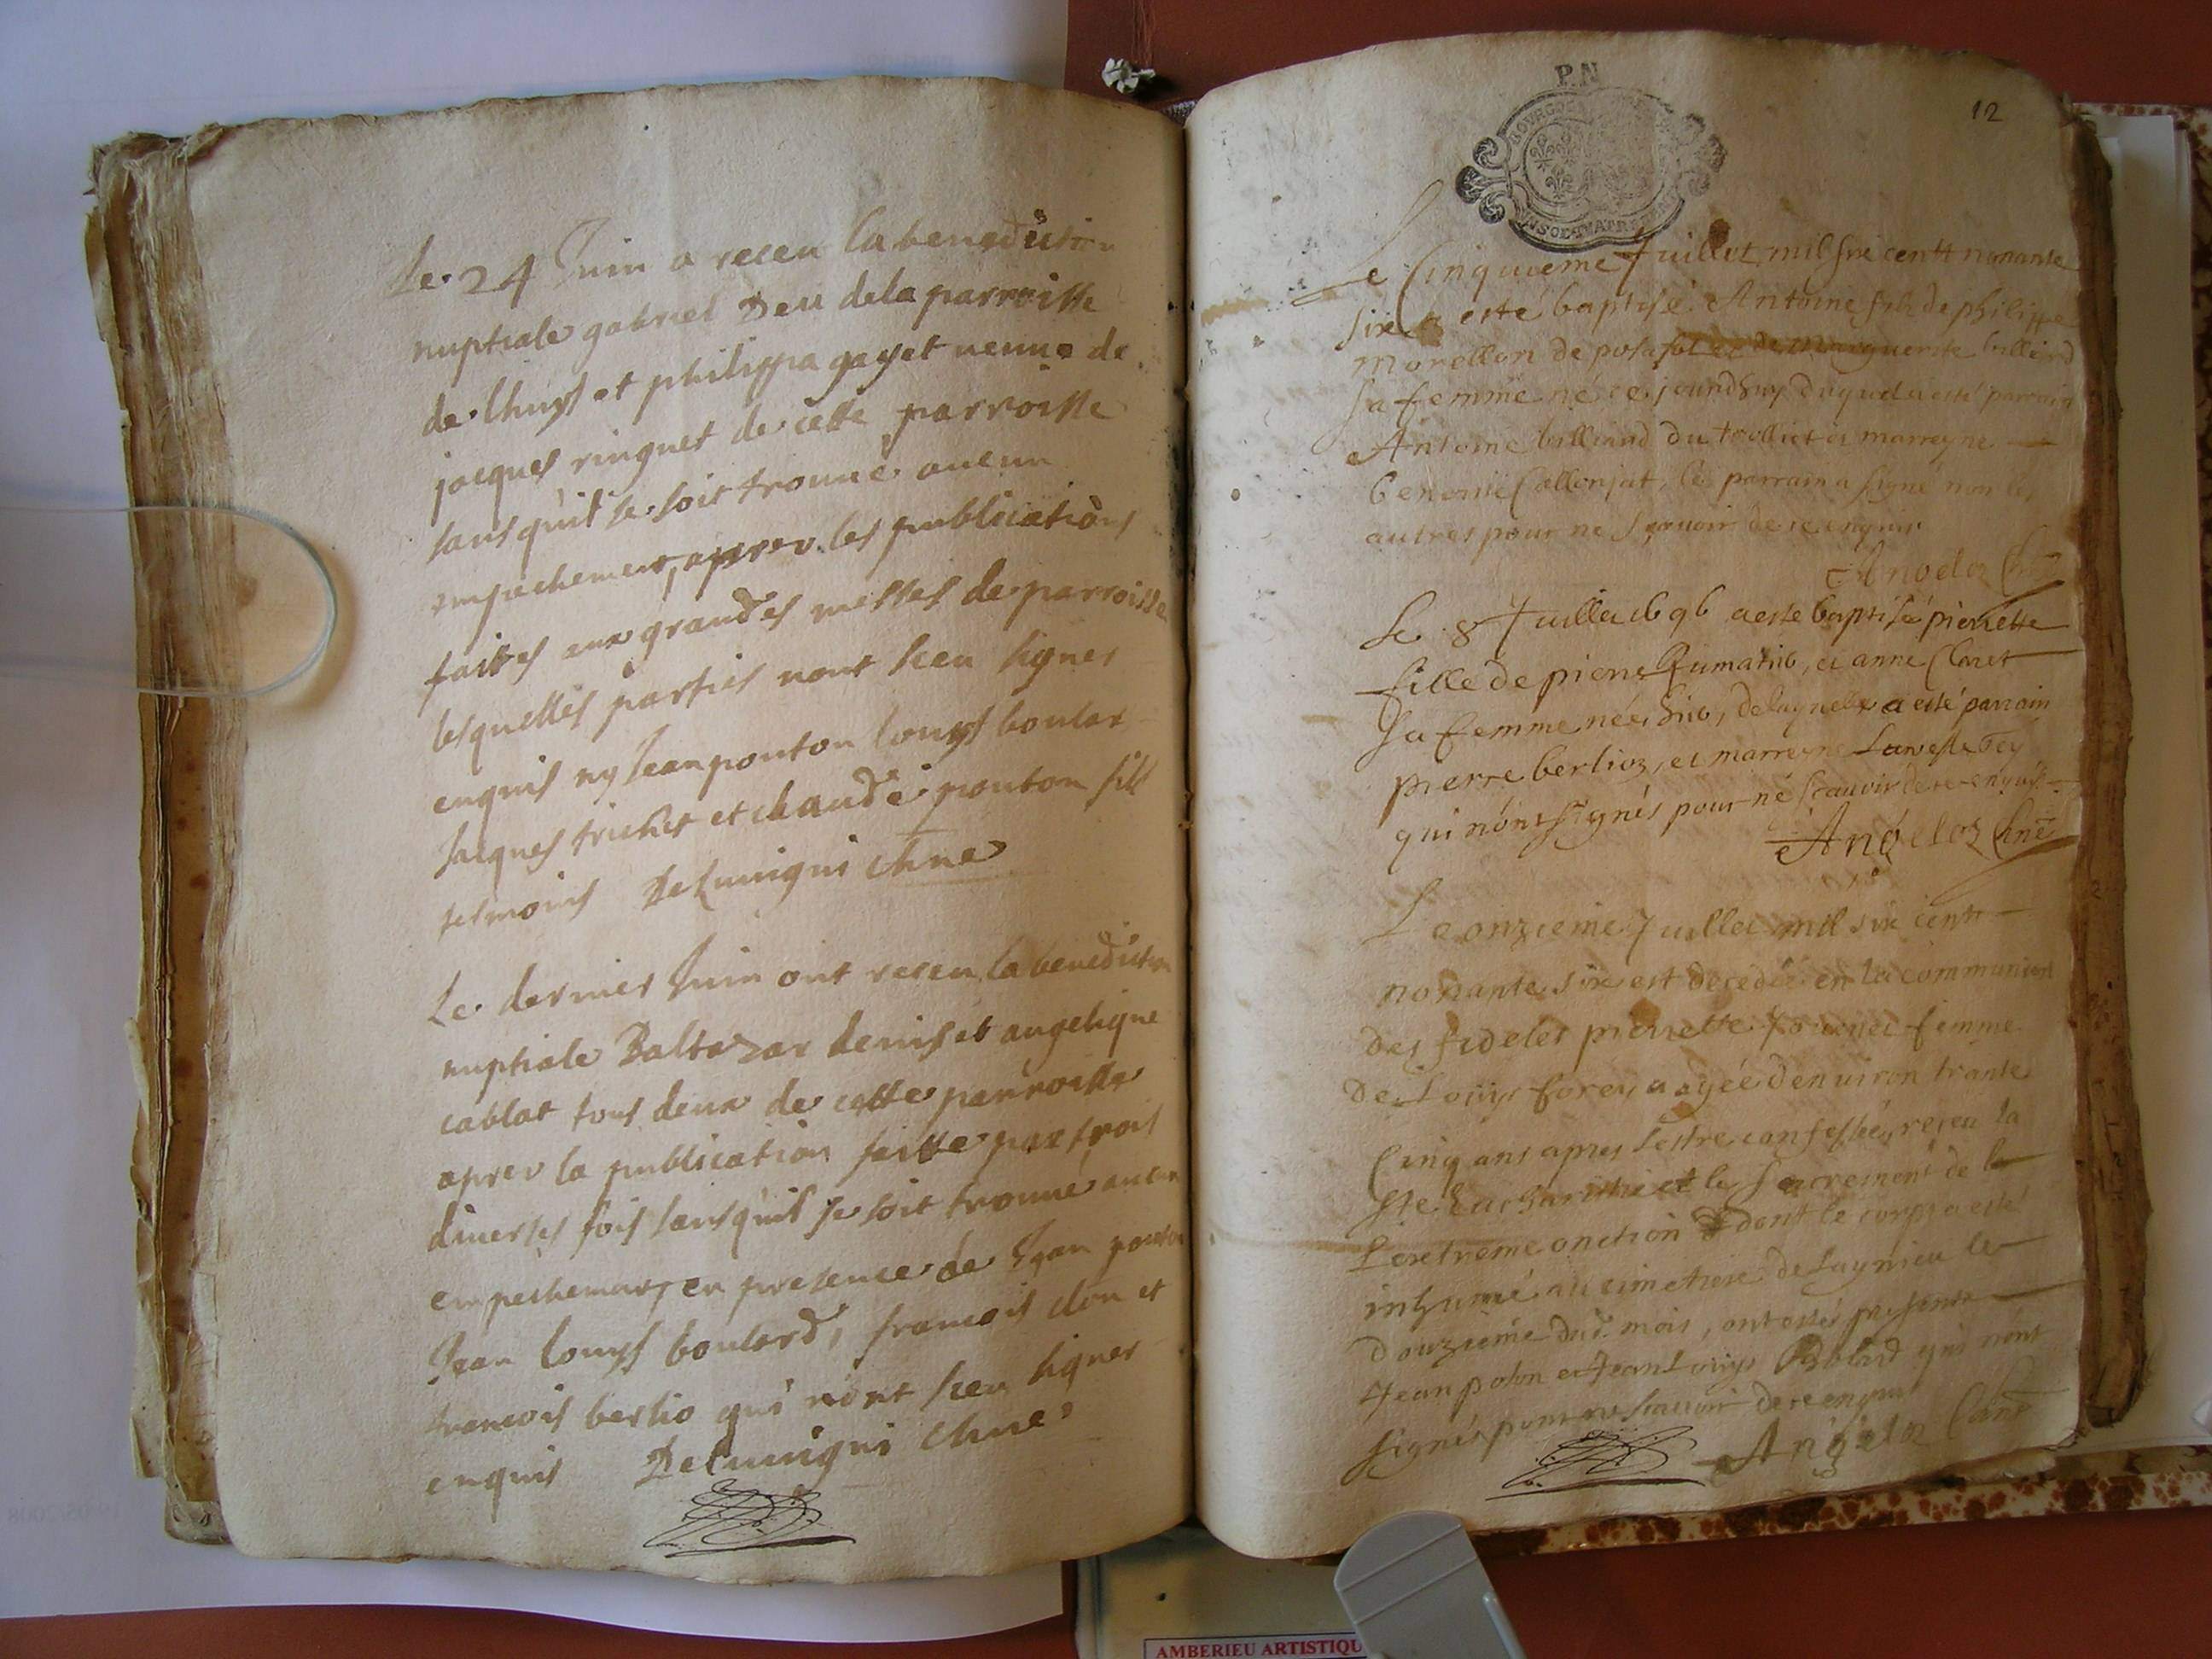 Le 24 Juin a receu la benediction
nuptiale gabriel Deu dela parroisse
de lhuys et philippa gayet veuve de
jacques ringuet de cette parroisse
sans quil se soit trouué aucun
empechement, apres les publications
faittes aux grandes messes de parroisse
lesquelles parties nont sceu signer
enquis ny Jean pouton louys boular
Jacques trichet et claude pouton fils
tesmoins
Le dernier Juin ont receu la benediction
nuptiale Baltazar denis et angelique
cablat tous deux de cette parroisse
apres la publication faitte par trois
diuerses fois sans quil se soit trouué aucun
empechement en presence de Jean pouton
Jean louys boulard, francois clon et
francois berlio qui nont sceu signer
enquis
P. N
12
Le Cinquieme Juillet mil six centt nonante
six a esté baptisé Antoine fils de philippe
Morellon de posafol et de Marguerite billiard
sa femme né ce jourdhuy duquel a esté parrain
Antoine billiard du et marreyne
benoite Callonjat, le parrain a signé non les
autres pour ne sçauoir de ce enquis
Angeloz Curé
Le 8 Juillet 1696 a este baptisé pierrette
fille de pierre, et anne Claret
sa femme née hier, delaquelle a esté parrain
pierre berlioz, et marreyne
qui nont signés pour ne scauoir de ce enquis
Angeloz Curé
Le onzieme Juillet mil six centt
nonante six est decedée en la communion
des fideles pierrette femme
de Louys forey aagée denuiron trante
Cinq ans apres sestre confessée, receu la
Ste Eucharistie et le Sacrement de la
lextreme onction dont le corps a esté
inhumé au cimetiere de Lagnieu le
Douzieme dud. mois, ont estés presents
Jean poton et Jean Louys Bolard qui nont
signés pour ne scauoir de ce enquis
Angeloz Curé
AMBERIEU ARTISTIQU